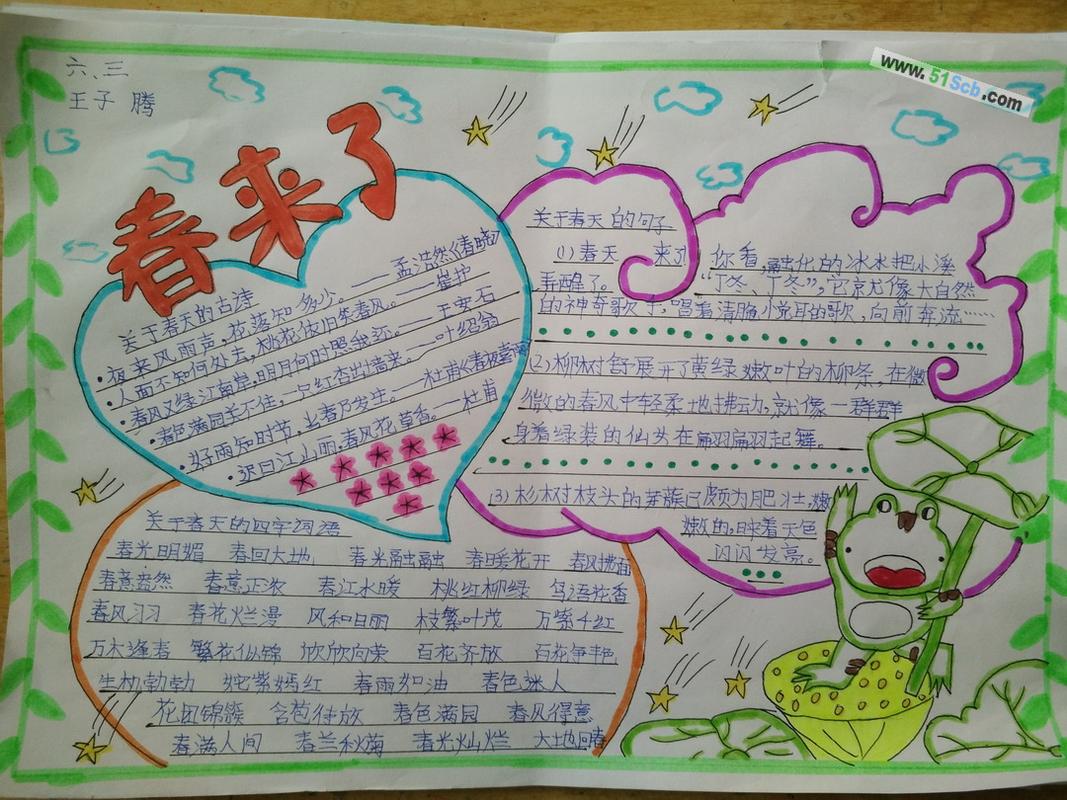 www.51Scb.com
六、三
王子腾
春来了
关于春天的古诗
夜来风雨声,花落知多少。——孟浩然《春晓》
人面不知何处去,桃花依旧笑春风。——崔护
春风又绿江南岸,明月何时照我还。——王安石
春色满园关不住,一户红杏出墙来。——叶绍翁
好雨知时节,当春乃发生。——杜甫《春夜喜雨》
迟日江山丽,春风花草香。——杜甫
关于春天的句子
(1)春天 来了 你看,融化的冰水把小溪
弄醒了。“丁冬、丁冬”,它就像大自然
的神奇歌手,唱着清脆悦耳的歌,向前奔流……
(2)柳树舒展开了黄绿嫩叶的柳条,在微
微的春风中轻柔地拂动,就像一群群
身着绿装的仙女在翩翩起舞。
(3)杉树枝头的芽簇已颇为肥壮,嫩
嫩的,映着天色
闪闪发亮。
关于春天的四字词语
春光明媚 春回大地 春光融融 春暖花开 春风拂面
春意盎然 春意正浓 春江水暖 桃红柳绿 鸟语花香
春风习习 春花烂漫 风和日丽 枝繁叶茂 万紫千红
万木逢春 繁花似锦 欣欣向荣 百花齐放 百花争艳
生机勃勃 姹紫嫣红 春雨如油 春色迷人
花团锦簇 含苞待放 春色满园 春风得意
春满人间 春兰秋菊 春光灿烂 大地回春